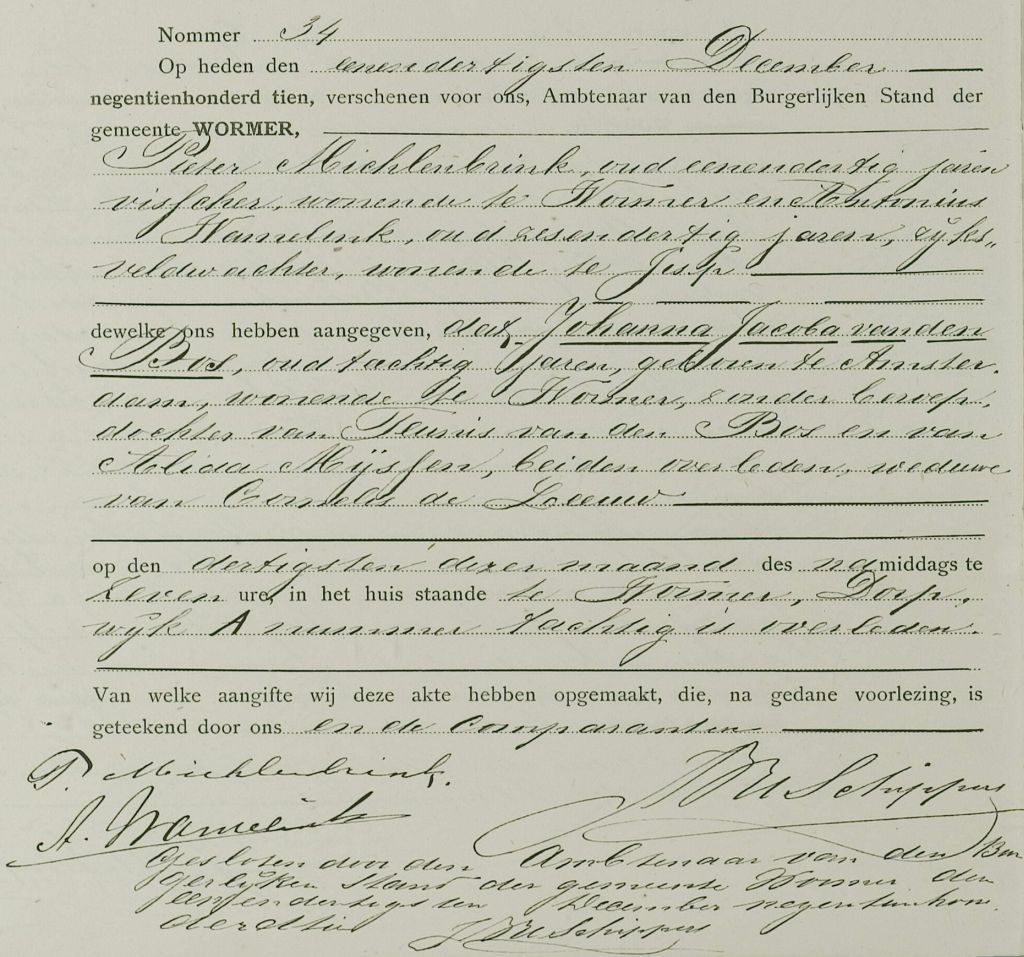 Nommer 34
Op heden den eenendertigsten December
negentienhonderd tien, verschenen voor ons, Ambtenaar van den Burgerlijken Stand der
gemeente WORMER,
Pieter Michlenbrink, oud eenendertig jaren
visscher, wonende te Wormer en Antonius
Wamelink, oud zesendertig jaren, rijks„
veldwachter, wonende te Jisp
dewelke ons hebben aangegeven, dat Johanna Jacoba van den
Bos, oud tachtig jaren, geboren te Amster„
dam, wonende te Wormer, zonder beroep,
dochter van Teunis van den Bos en van
Alida Mijssen, beiden overleden, weduwe
van Cornelis de Leeuw
op den dertigsten dezer maand des namiddags te
zeven ure, in het huis staande te Wormer, Dorp,
wijk A nummer tachtig is overleden.
Van welke aangifte wij deze akte hebben opgemaakt, die, na gedane voorlezing, is
geteekend door ons en de comparanten
P. Michlenbrink.
Schippers
A. Wamelink
Gesloten door den Ambtenaar van den Bur
gerlijken Stand der gemeente Wormer den
eenendertigsten December negentienhon
derdtien
Schippers